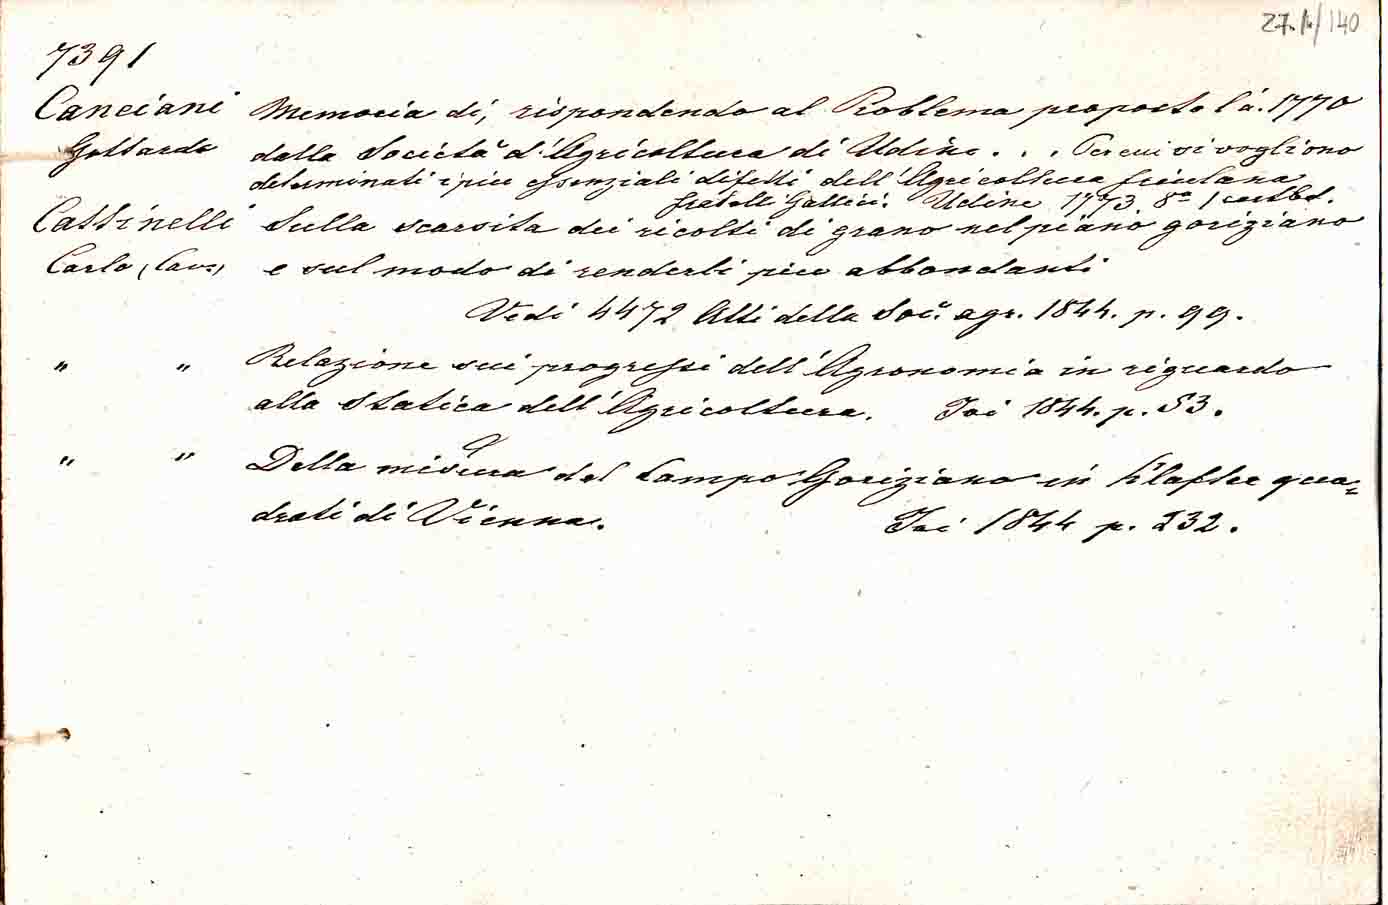 27.1/140
7391
Canciani Memoria di, rispondendo al Problema proposto l'a. 1770
Gottardo dalla Società d'Agricoltura di Udine . . . Per cui si vogliono
determinati i piu essenziali difetti dell'Agricoltura friulana
fratelli Gallici. Udine 1773 8º 1 cartbd.
Catinelli Sulla scarsita dei ricolti di grano nel piano goriziano
Carlo (Cav.) e sul modo di renderli piu abbondanti
Vedi 4472 Atti della Soc. agr. 1844. p. 99.
" " Relazione sui progressi dell'Agronomia in riguardo
alla Statica dell'Agricoltura. Ivi 1844. p. 53.
" " Della misura del Campo Goriziano in Klafter qua=
drati di Vienna. Ivi 1844 p. 232.